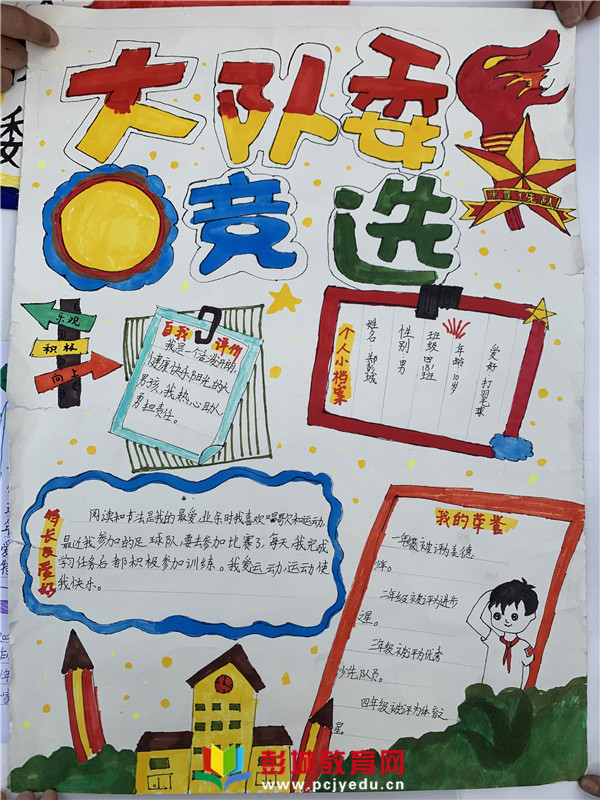 大队委
竞选
乐观
积极
向上
自我评价
我是一个活泼开朗,
健康快乐阳光的大
男孩,我热心助人
勇担责任。
个人小档案
姓名:郑彭城
性别:男
班级:四(8)班
年龄:10岁
爱好:打羽毛球
特长及爱好
阅读和书法是我的最爱,业余时我喜欢唱歌和运动,
最近我参加的足球队,要去参加比赛了,每天,我完成
学习任务后都积极参加训练。我爱运动,运动使
我快乐。
我的荣誉
一年级被评为美德
少年。
二年级被评为进步
之星。
三年级被评为优秀
少先队员。
四年级被评为体育之
星
彭城教育网
www.pcjyedu.cn